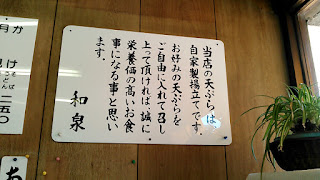 当店の天ぷらは
自家製揚立てです。
お好みの天ぷらを
ご自由に入れて召し
上って頂ければ誠に
栄養価の高いお食
事になる事と思い
ます。
和泉
かけ
そば
うどん
二五〇
有